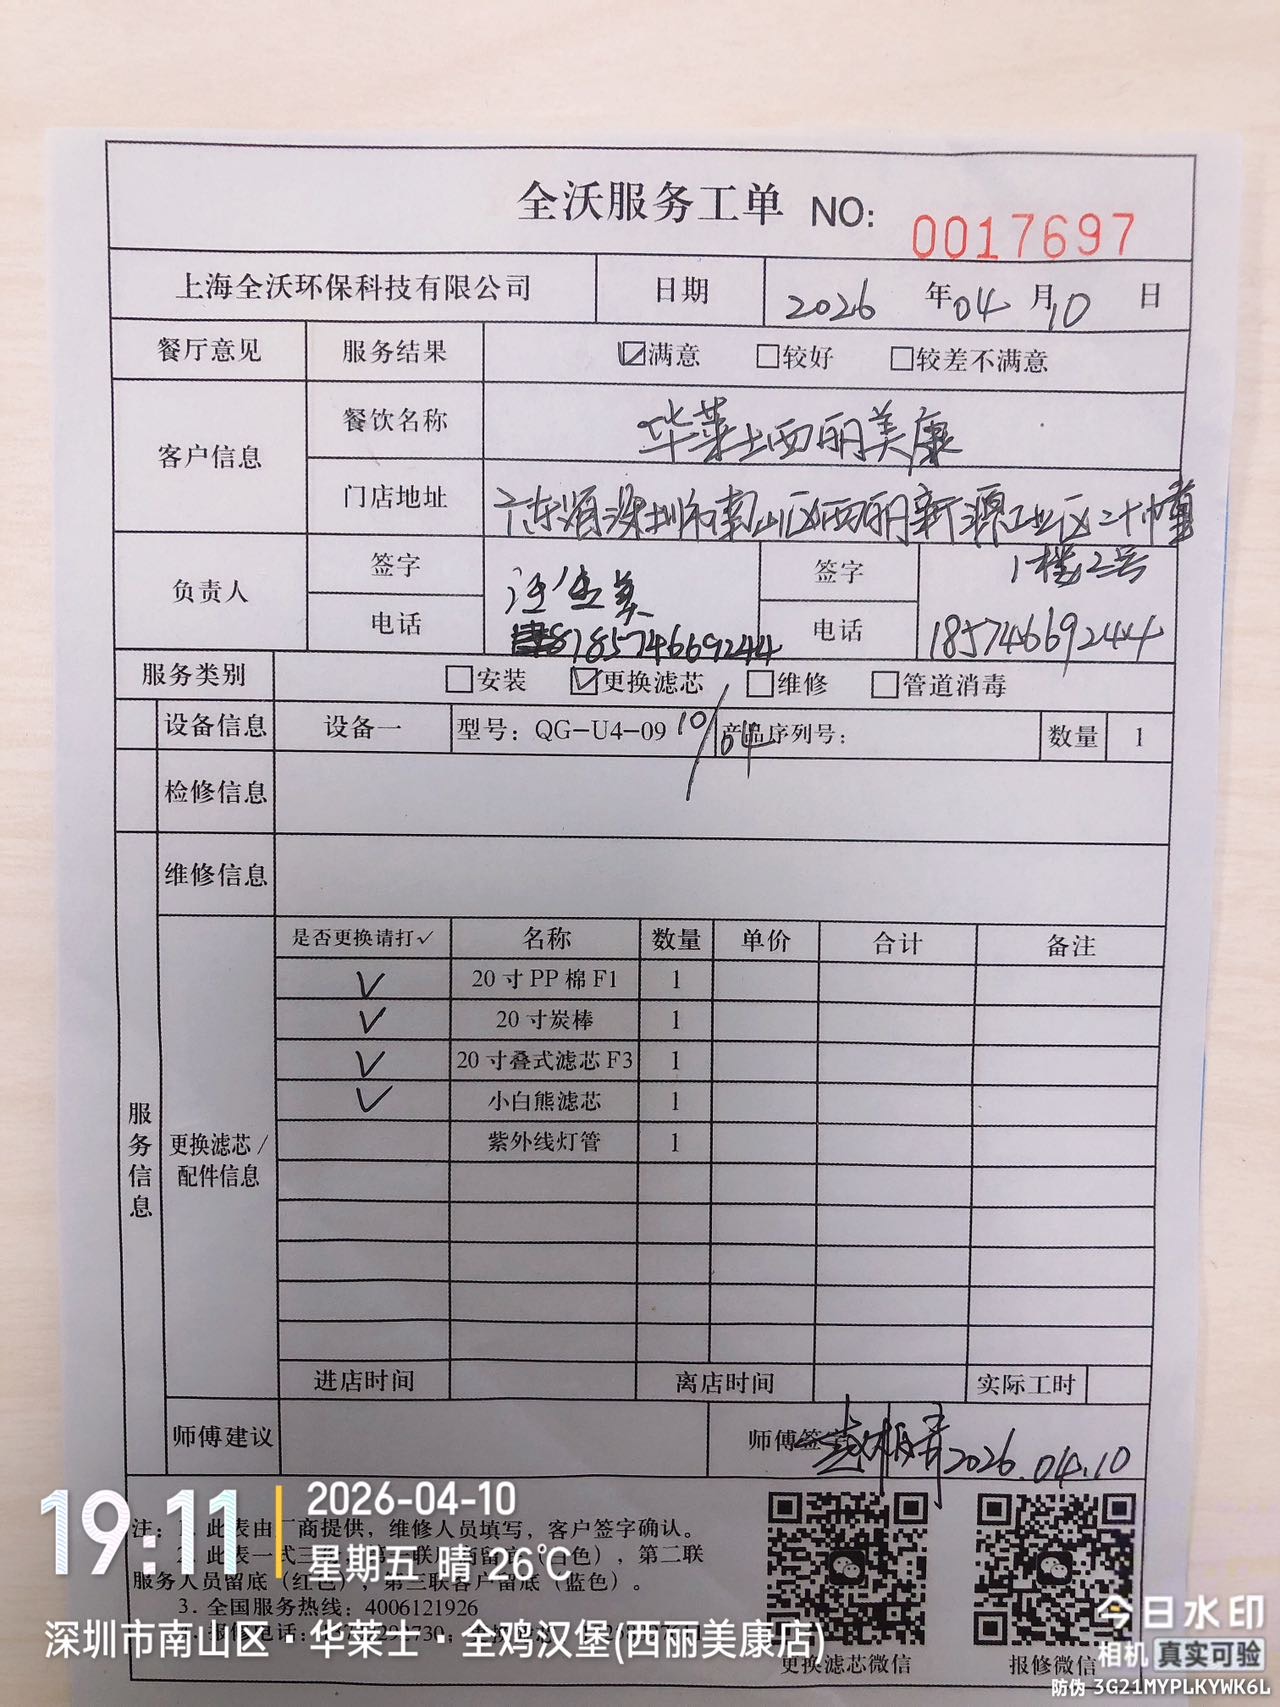 全沃服务工单 NO: 0017697
上海全沃环保科技有限公司 日期 2026 年 04 月 10 日
餐厅意见 服务结果 ☑满意 □较好 □较差不满意
客户信息 餐饮名称 华莱士西丽美康
门店地址 广东省深圳市南山区西丽新源工业区二十幢
1楼2号
负责人 签字 签字
电话 18574669244 电话 18574669244
服务类别 □安装 ☑更换滤芯 □维修 □管道消毒
设备信息 设备一 型号: QG-U4-09 10/04 产品序列号: 数量 1
检修信息
维修信息
是否更换请打✓ 名称 数量 单价 合计 备注
✓ 20寸PP棉F1 1
✓ 20寸炭棒 1
✓ 20寸叠式滤芯F3 1
✓ 小白熊滤芯 1
紫外线灯管 1
服务信息
更换滤芯/
配件信息
进店时间 离店时间 实际工时
师傅建议 师傅签 2026.04.10
注: 1. 此表由厂商提供，维修人员填写，客户签字确认。
2. 此表一式三 (白色)，第二联
服务人员留底（红色），第三联客户留底（蓝色）。
3. 全国服务热线: 4006121926
更换滤芯微信 报修微信
19:11
2026-04-10
星期五 晴 26℃
深圳市南山区·华莱士·全鸡汉堡(西丽美康店)
今日水印
相机 真实可验
防伪 3G21MYPLKYWK6L